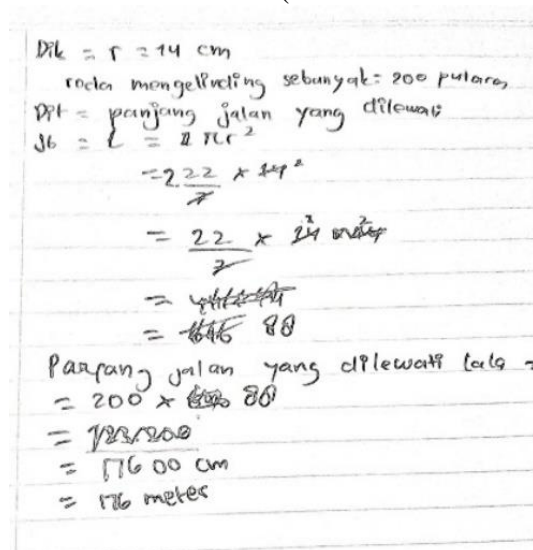 Dik = r = 14 cm
roda mengelinding sebanyak = 200 putaran
Dit = panjang jalan yang dilewati
Jb = L = 2 πr²
= 2 22/7 × 14²
= 22/7 × 14
=
= 88
Panjang jalan yang dilewati
= 200 × 88
=
= 17600 cm
= 176 meter